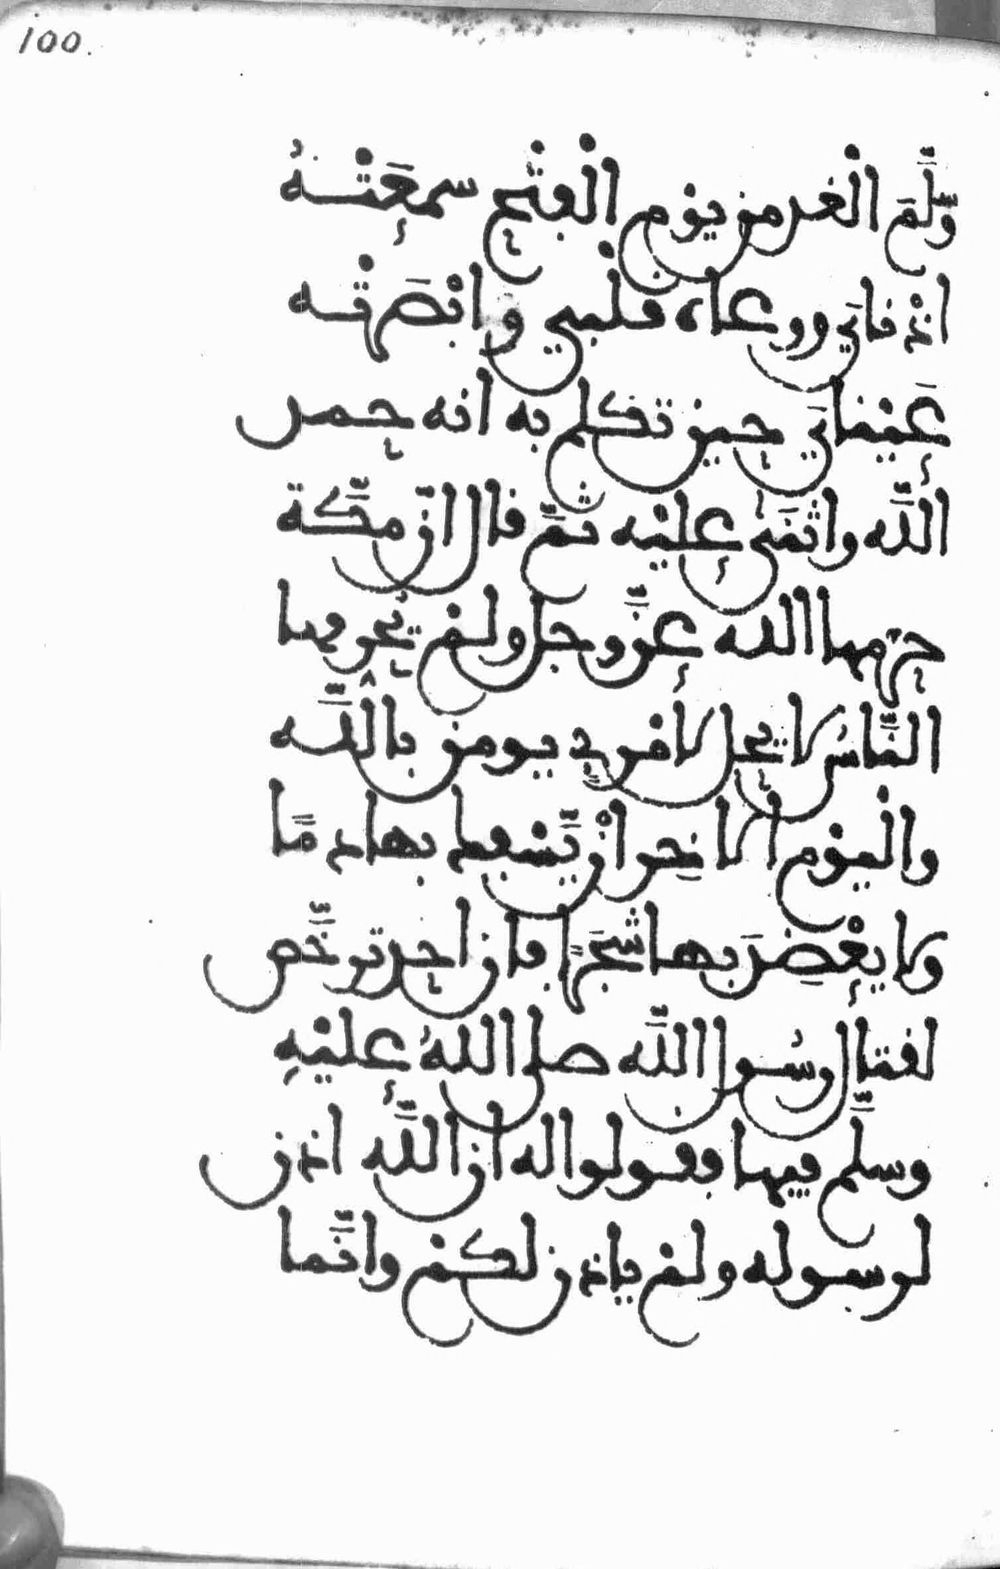 100.
وَسَّلَّمَ الْغد من يوْم الْفتْح سمعَتْهُ
اذْناي ووعاه قلبي وابْصَرتْه
عَيْناي حين تكلم به انه حمد
اللَّه واثنَى عليْه ثمَّ قال انّ مكَّة
حرّمها الله عزَّ وجل ولمْ يحرمها
النَّاسُ لا يحل لامْرءٍ يومن باللَّه
والْيوْم الاخر انْ يَّسْفط بها دمًا
ولا يعْضِدَ بها شجَرةً فان احد ترخَّص
لقتال رسُول اللَّه صلى اللهُ عليْهِ
وسلَّم فيها فقولوا له ان اللَّه اذن
لرسوله ولمْ ياذن لكمْ وانَّما